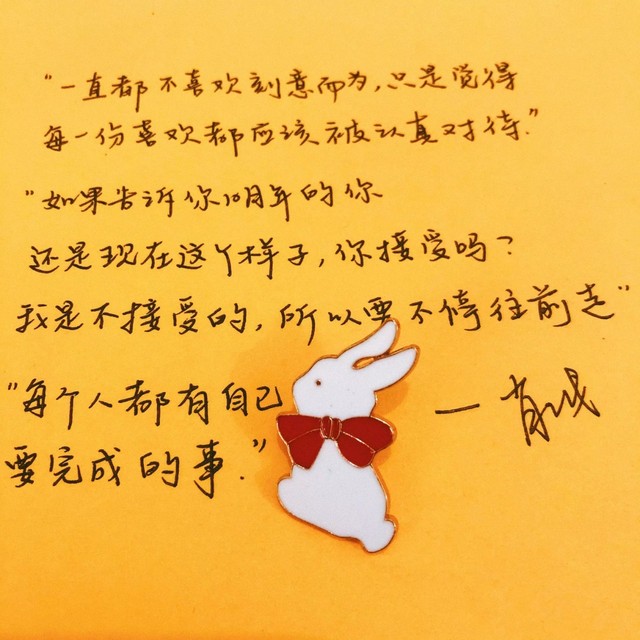 “一直都不喜欢刻意而为,只是觉得
每一份喜欢都应该被认真对待.”
“如果告诉你10月年的你
还是现在这个样子,你接受吗?
我是不接受的,所以要不停往前走”
“每个人都有自己
要完成的事.”
—肖战